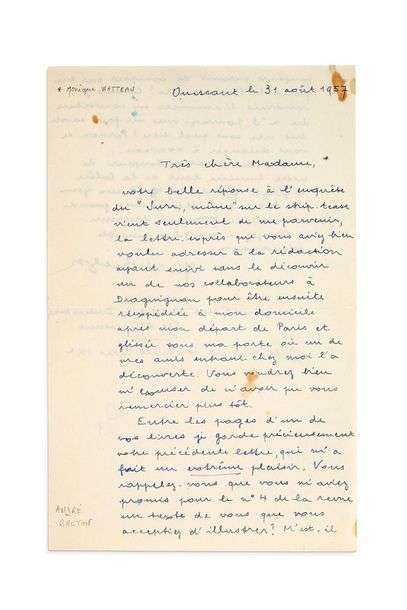 * Monique WATTEAU
Ouessant le 31 août 1957
Très chère Madame, *
votre belle réponse à l'enquête
du "Surr., même" sur le strip-tease
vient seulement de me parvenir,
la lettre exprès que vous aviez bien
voulu adresser à la rédaction
ayant suivi sans le découvrir
un de nos collaborateurs à
Draguignan pour être ensuite
réexpédiée à mon domicile
après mon départ de Paris et
glissée sous ma porte où un de
mes amis entrant chez moi l'a
découverte. Vous voudrez bien
m'excuser de n'avoir pu vous
remercier plus tôt.
Entre les pages d'un de
vos livres je garde précieusement
votre précédente lettre, qui m'a
fait un extrême plaisir. Vous
rappelez-vous que vous m'aviez
promis pour le n° 4 de la revue
un texte de vous que vous
acceptiez d'illustrer? M'est-il
ANDRÉ
BRETON